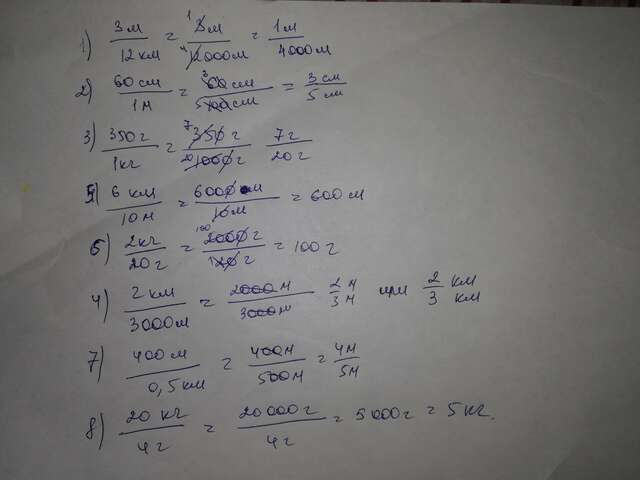 1) 3м/12км = 3м/12000м = 1м/4000м
2) 60см/1м = 60см/100см = 3см/5см
3) 350г/1кг = 350г/1000г 7г/20г
5) 6км/10м = 6000м/10м = 600м
6) 2кг/20г = 2000г/20г = 100г
4) 2км/3000м = 2000м/3000м 2м/3м или 2км/3км
7) 400м/0,5км = 400м/500м = 4м/5м
8) 20кг/4г = 20000г/4г = 5000г = 5кг.